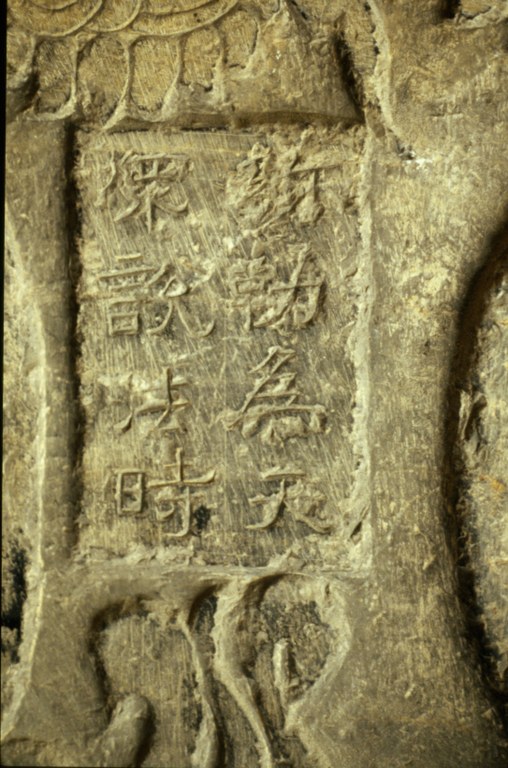 彌勒為天
衆說法時